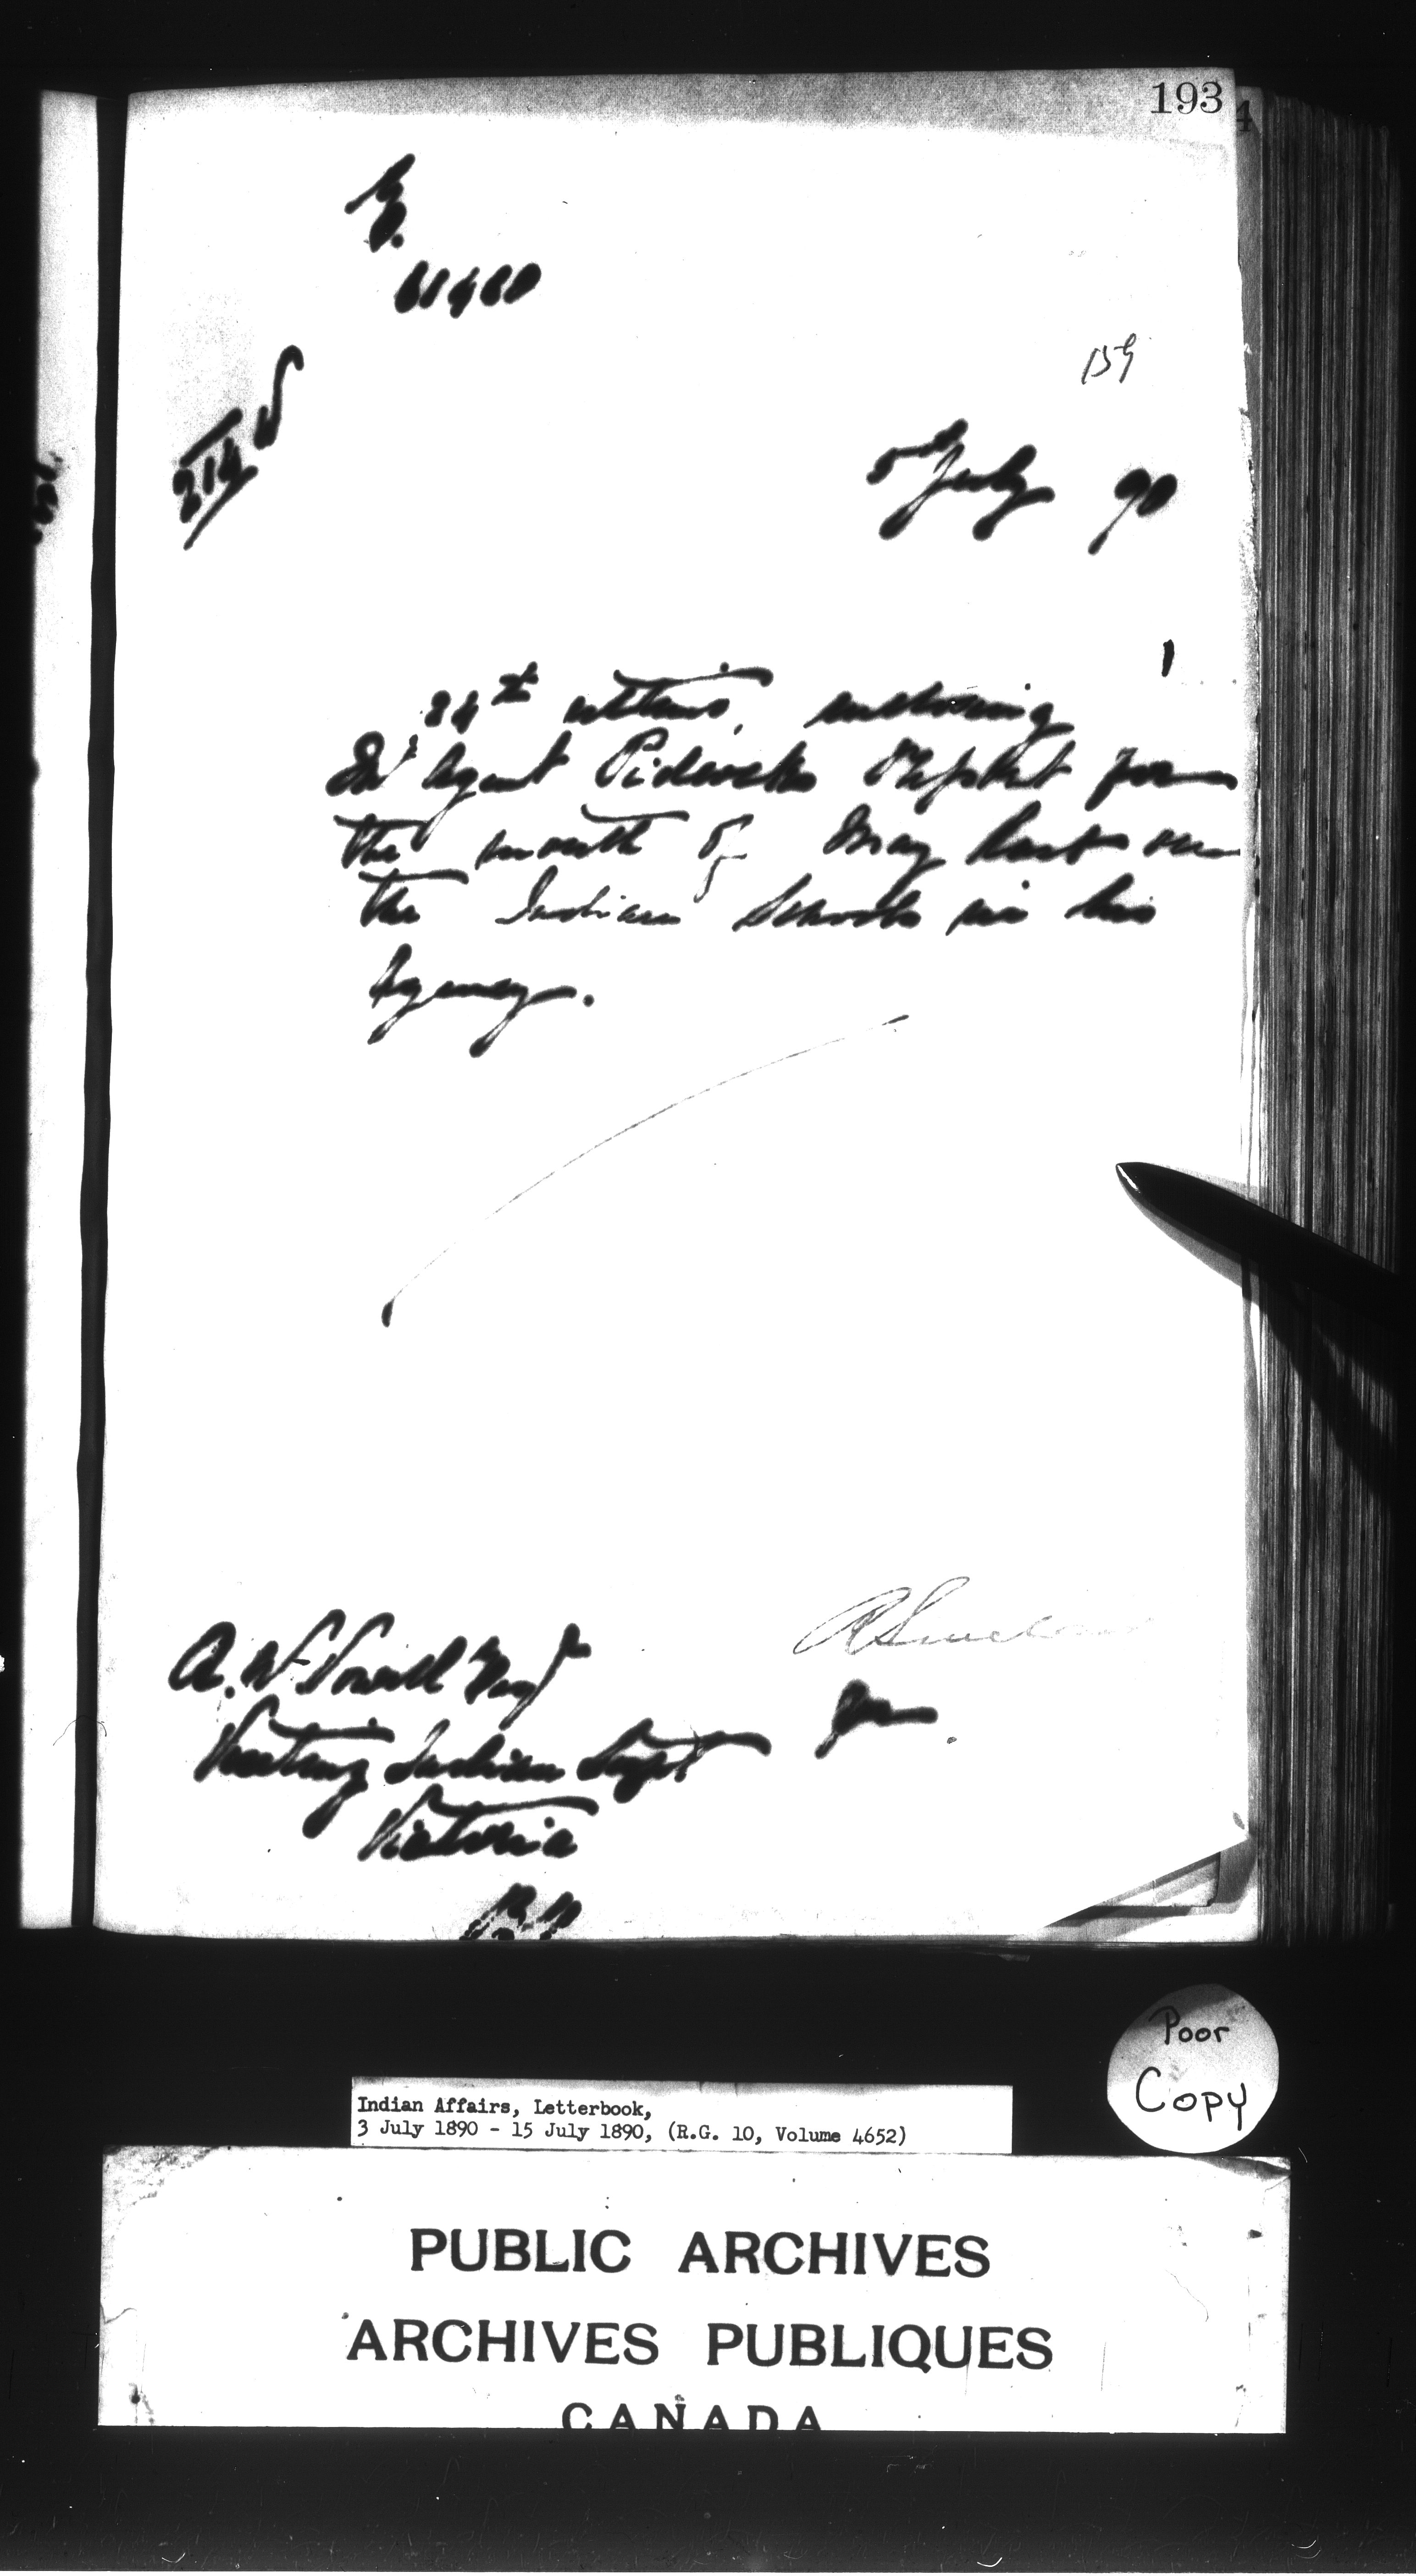 193
B.
61460
159
214
5th July 90
24th ultimo, enclosing
Indn Agent Pidcock's Report for
the month of May last on
the Indian Schools in his
Agency.
A. W. Vowell Esqr
Visiting Indian Supt
Victoria
B.C.
R Sinclair
for
Poor
Copy
Indian Affairs, Letterbook,
3 July 1890 - 15 July 1890, (R.G. 10, Volume 4652)
PUBLIC ARCHIVES
ARCHIVES PUBLIQUES
CANADA